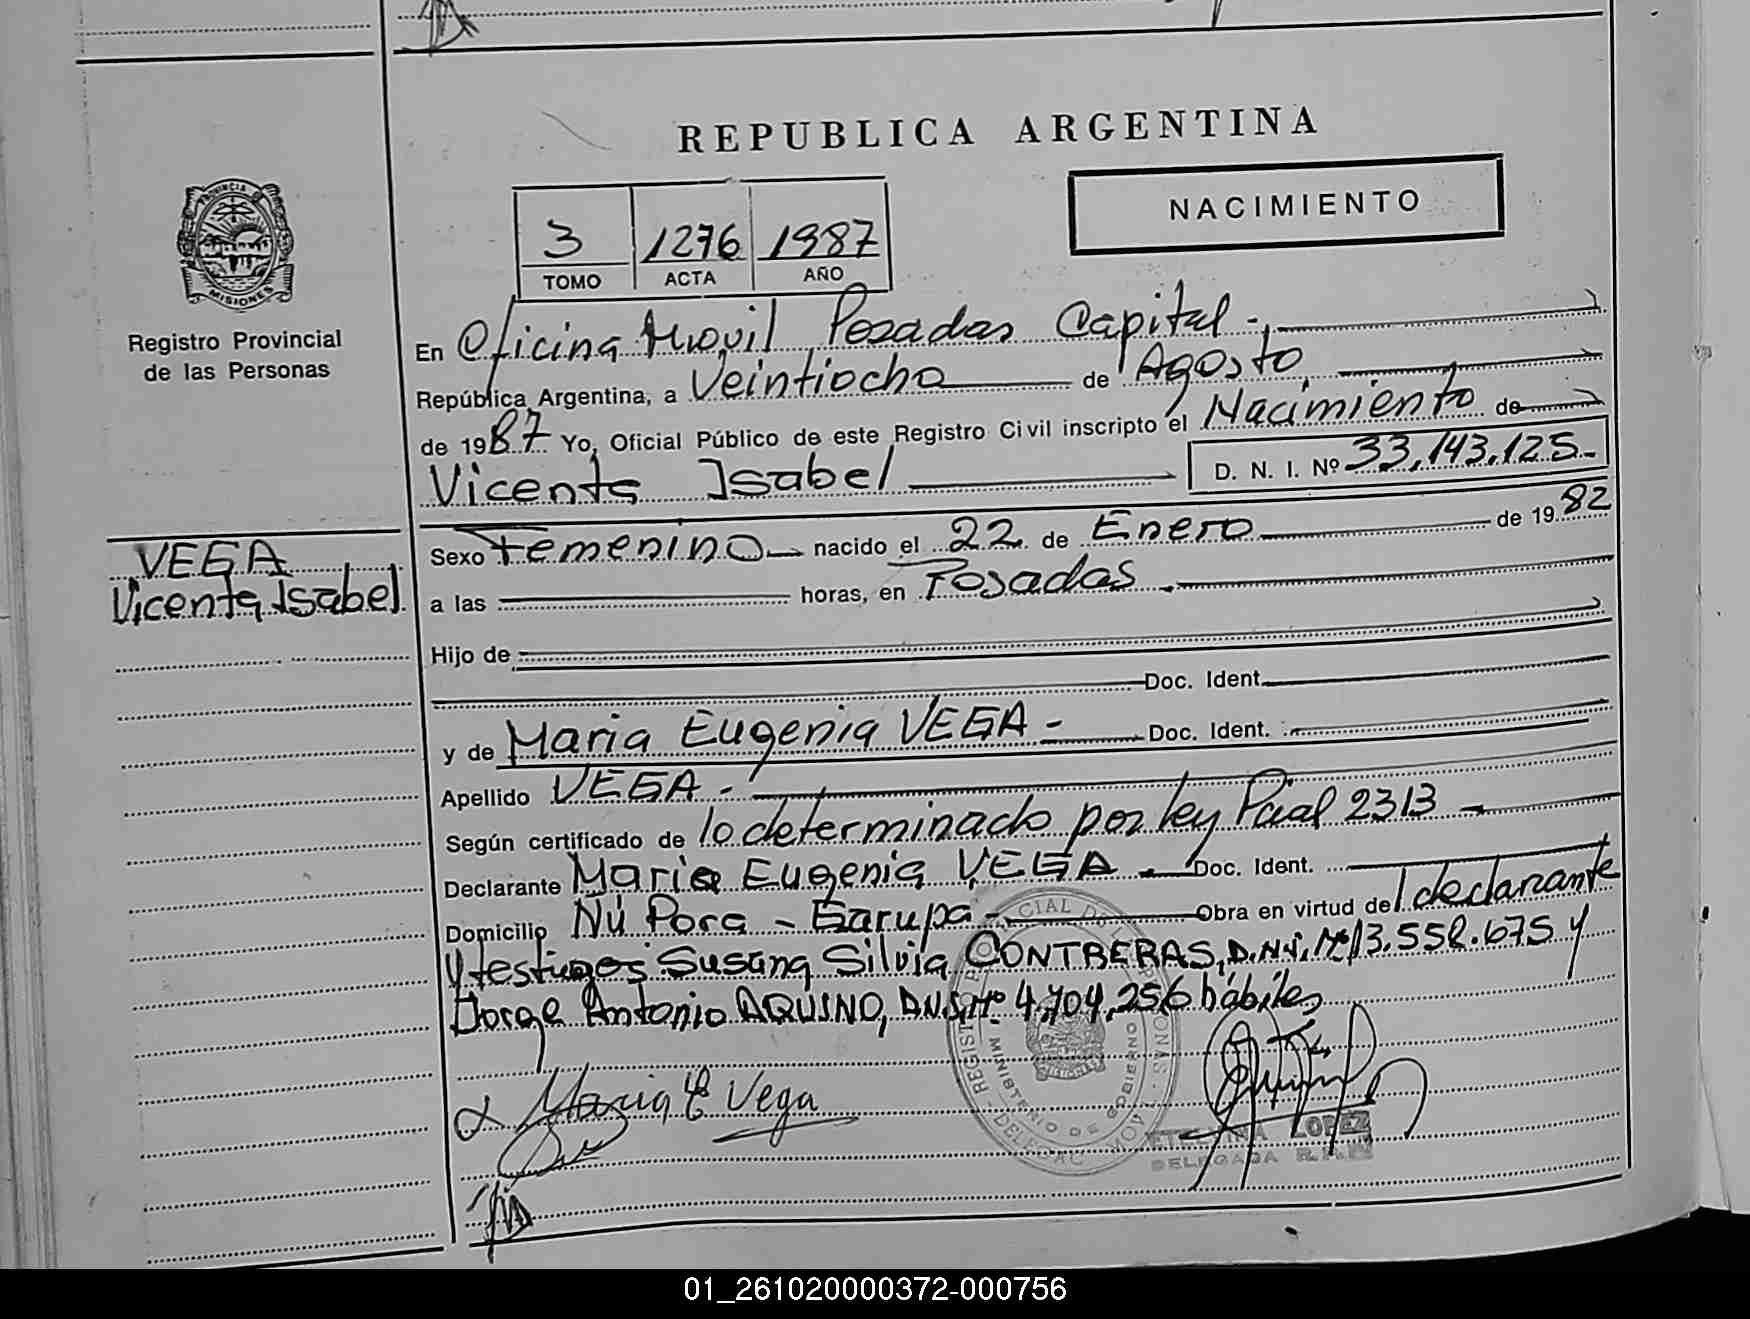 REPUBLICA ARGENTINA
NACIMIENTO
3 1276 1987
TOMO ACTA AÑO
PROVINCIA DE
MISIONES
Registro Provincial
de las Personas
En Oficina Movil Posadas Capital -
República Argentina, a Veintiocho de Agosto
de 1987 Yo, Oficial Público de este Registro Civil inscripto el Nacimiento de
Vicenta Isabel D. N. I. Nº 33,143,125-
VEGA
Vicenta Isabel
Sexo Femenino nacido el 22 de Enero de 1982
a las horas, en Posadas
Hijo de
Doc. Ident.
y de Maria Eugenia VEGA - Doc. Ident.
Apellido VEGA -
Según certificado de lo determinado por ley Pcial 2313
Declarante Maria Eugenia VEGA Doc. Ident.
Domicilio Ñú Pora - Garupa - Obra en virtud del declarante
y testigos Susana Silvia CONTRERAS, D.N.I. Nº 13.558.675 y
Jorge Antonio AQUINO, D.N.I. Nº 4,704,256 hábiles
Maria E Vega
MINISTERIO DE GOBIERNO
LOPEZ
DELEGADA
01_261020000372-000756